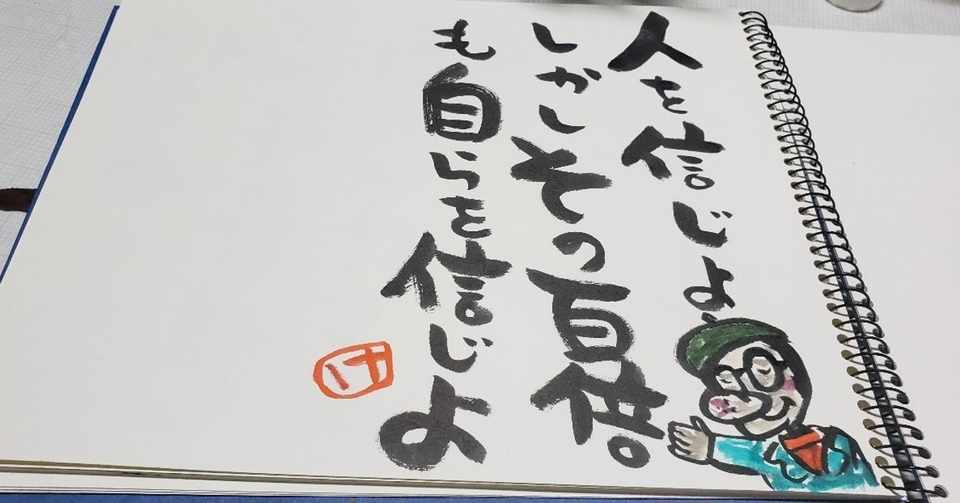 人を信じよ、
しかしその百倍
も自らを信じよ